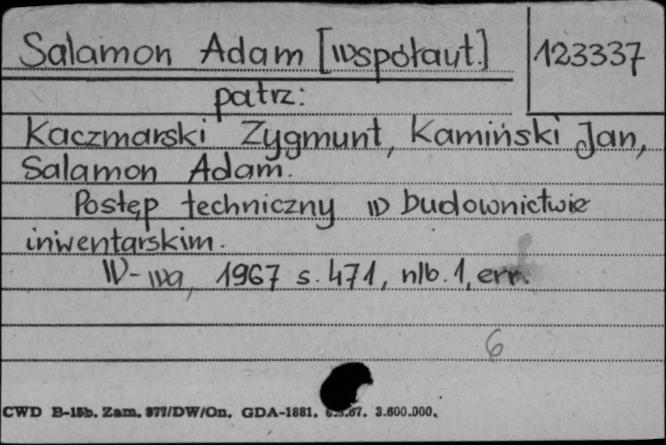 Salamon Adam [współaut.] 123337
patrz:
Kaczmarski Zygmunt, Kamiński Jan,
Salamon Adam.
Postęp techniczny w budownictwie
inwentarskim.
W-wa, 1967 s. 471, nlb. 1, err.
6
CWD B-15b. Zam. 977/DW/On. GDA-1881. .67. 3.600.000.